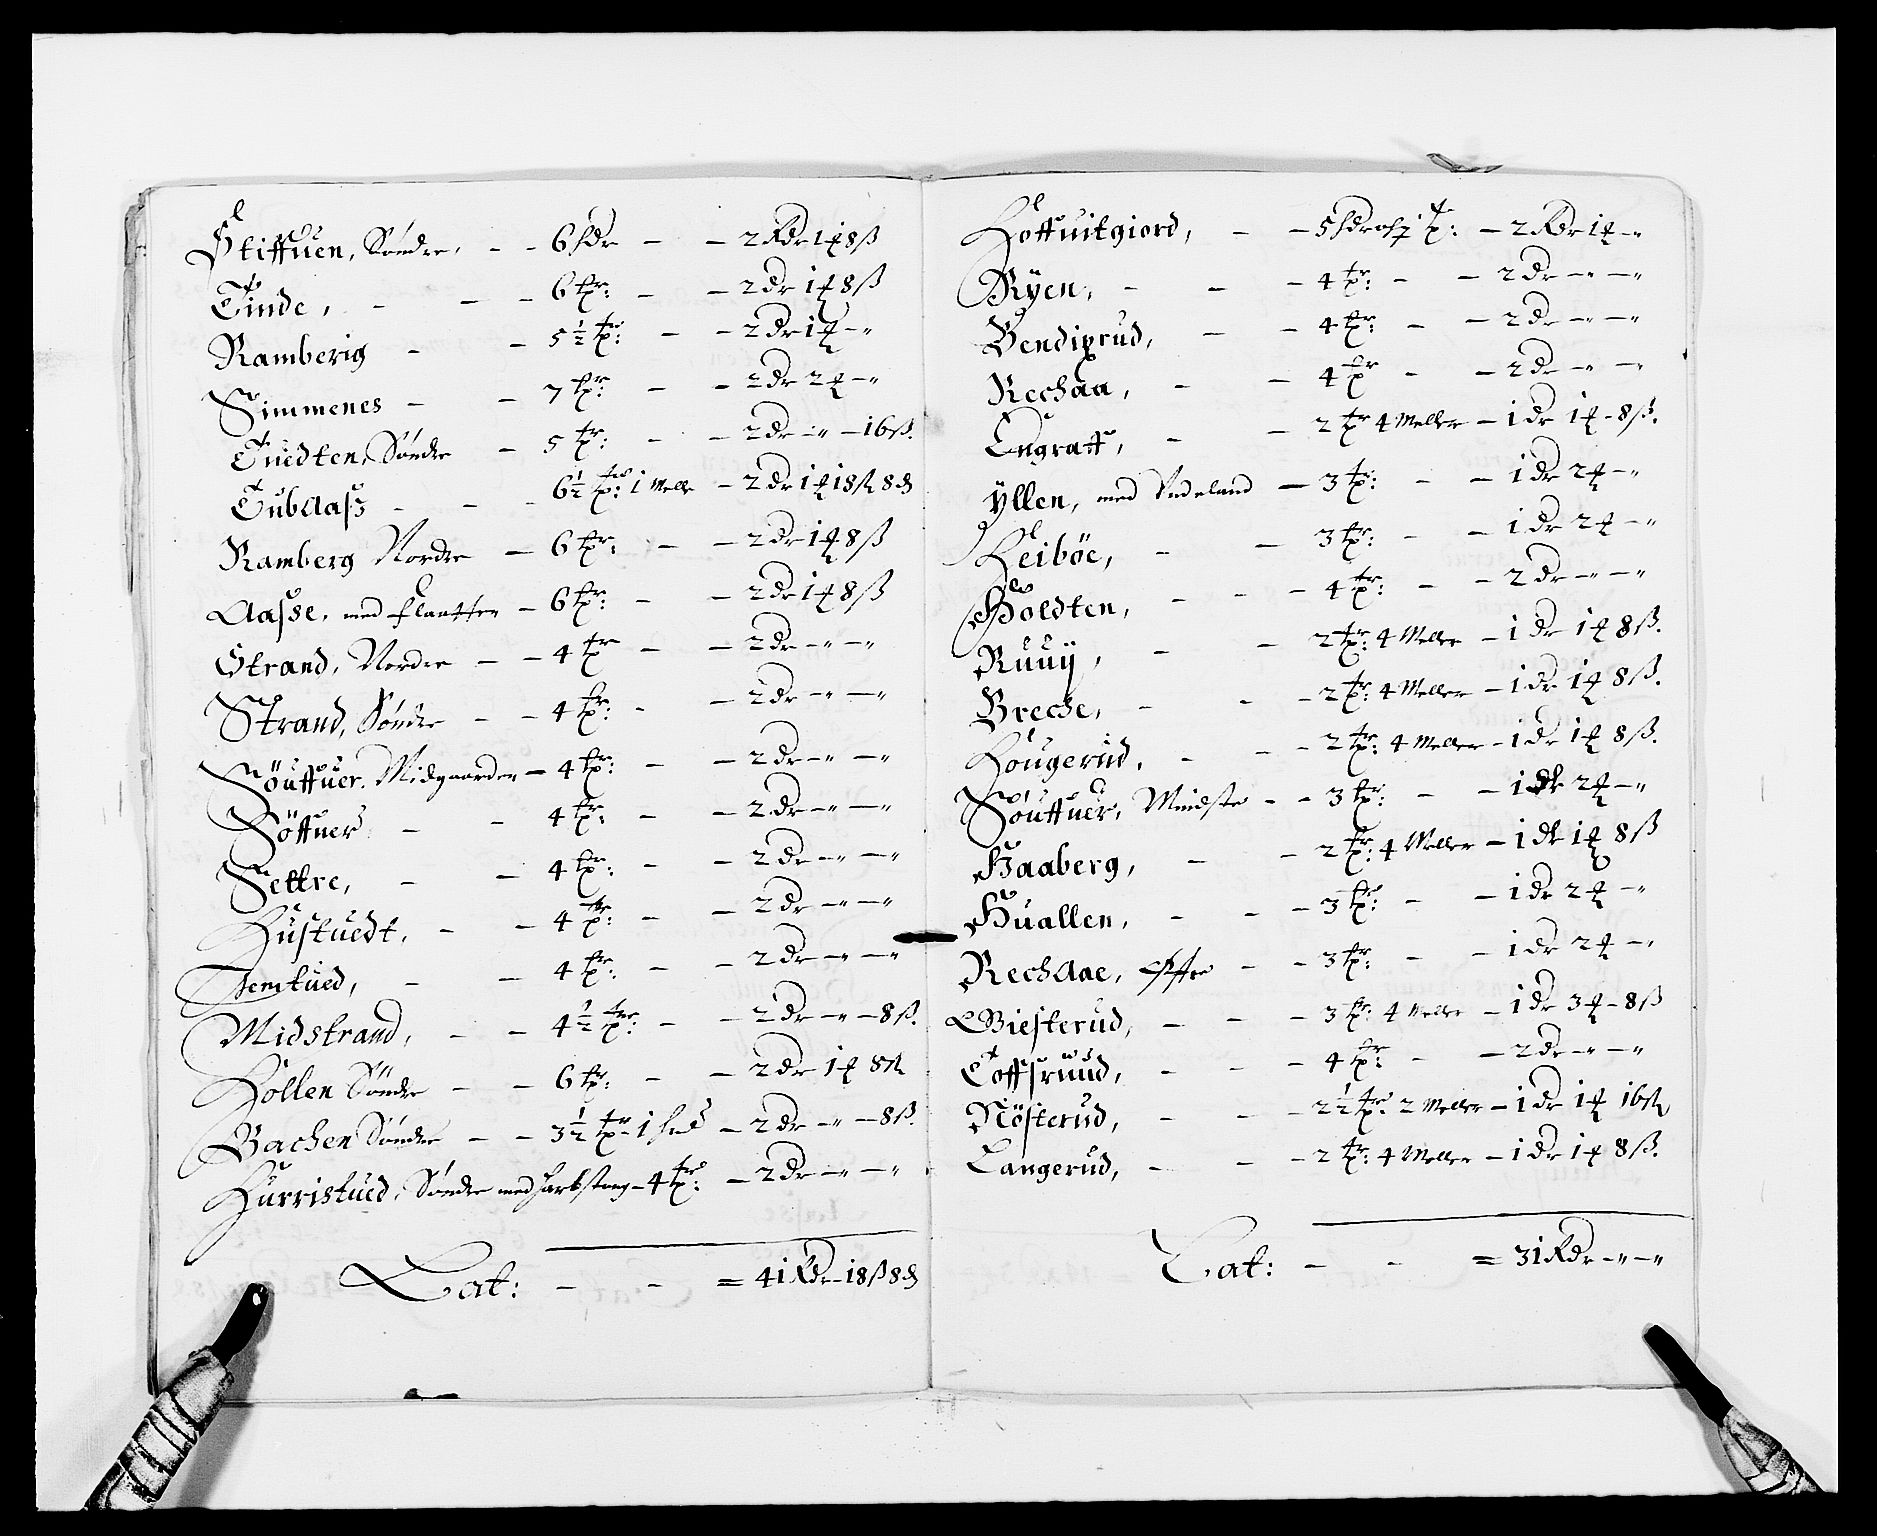 Stiffuen, Søndre, - - 6 hdr - - 2 Rdr 1 ℔ 8 ß
Tinde, - - - 6 tr: - - 2 dr 1 ℔ 8 ß
Ramberig - - 5 ½ tr: - - 2 dr 1 ℔ - "
Simmenes - - 7 tr: - - 2 dr 2 ℔ - "
Tuedten, Søndre - 5 tr: - - 2 dr - " - 16 ß.
Tubaaß - - - 6 ½ tr: 1 Mell - 2 dr 1 ℔ 18 ß 8 d
Ramberg Nordre - 6 tr: - - 2 dr 1 ℔ 8 ß
Aasse, med flaatten - 6 tr: - - 2 dr 1 ℔ 8 ß
Strand, Nordre - - 4 tr - - 2 dr - " - "
Strand, Søndre - - 4 tr: - - 2 dr - " - "
Söuffuer. Midgaarden - 4 tr: - - 2 dr - " - "
Söffuer - - 4 tr: - - 2 dr - " - "
Settre, - - 4 tr: - - 2 dr - " - "
Hustuedt, - - 4 tr: - - 2 dr - " - "
Jemtued, - - 4 tr: - - 2 dr - " - "
Midstrand, - - 4 ½ tr: - - 2 dr - " - 8 ß.
Hollen Søndre - - 6 tr: - - 2 dr 1 ℔ 8 ß
Bachen Søndre - - 3 ½ tr - 1 - 2 dr - " - 8 ß.
Hurristued, Søndre med - 4 tr: - 2 dr - " - "
Lat: - - = 41 Rdr - 18 ß 8 d
Hoffuitgiord, - - 5 hdr og ½ tr: - 2 Rdr 1 ℔ - "
Ryen, - - - 4 tr: - - 2 dr - " - "
Bendixrud, - - 4 tr: - - 2 dr - " - "
Rechaa, - - 4 tr - - 2 dr - " - "
Engraff, - - 2 tr 4 Meller - 1 dr 1 ℔ - 8 ß.
Yllen, med Ødeland - 3 tr: - - 1 dr 2 ℔ - "
Leiböe, - - 3 tr: - - 1 dr 2 ℔ - "
Holdten, - - - 4 tr: - - 2 dr - " - "
Ruuÿ, - - 2 tr: 4 Meller - 1 dr 1 ℔ 8 ß.
Breche, - - - 2 tr: 4 Meller - 1 dr 1 ℔ 8 ß.
Hougerud, - - - 2 tr: 4 Meller - 1 dr 1 ℔ 8 ß.
Söuffuer, Mindste - - 3 tr: - - 1 dr 2 ℔ - "
Haaberg, - - 2 tr: 4 Meller - 1 dr 1 ℔ 8 ß
Huallen, - - - 3 tr: - - 1 dr 2 ℔ - "
Rechaae, Øffre - - 3 tr: - - 1 dr 2 ℔ - "
Biesterud, - - - 3 tr: 4 Meller - 1 dr 3 ℔ - 8 ß
Toffsruud, - - - 4 tr: - - 2 dr - " - "
Nösterud, - - - 2 ½ tr: 2 Meller - 1 dr 1 ℔ 16 ß
Langerud, - - - 2 tr: 4 Meller - 1 dr 1 ℔ 8 ß.
Lat: - - = 31 Rdr - " - "